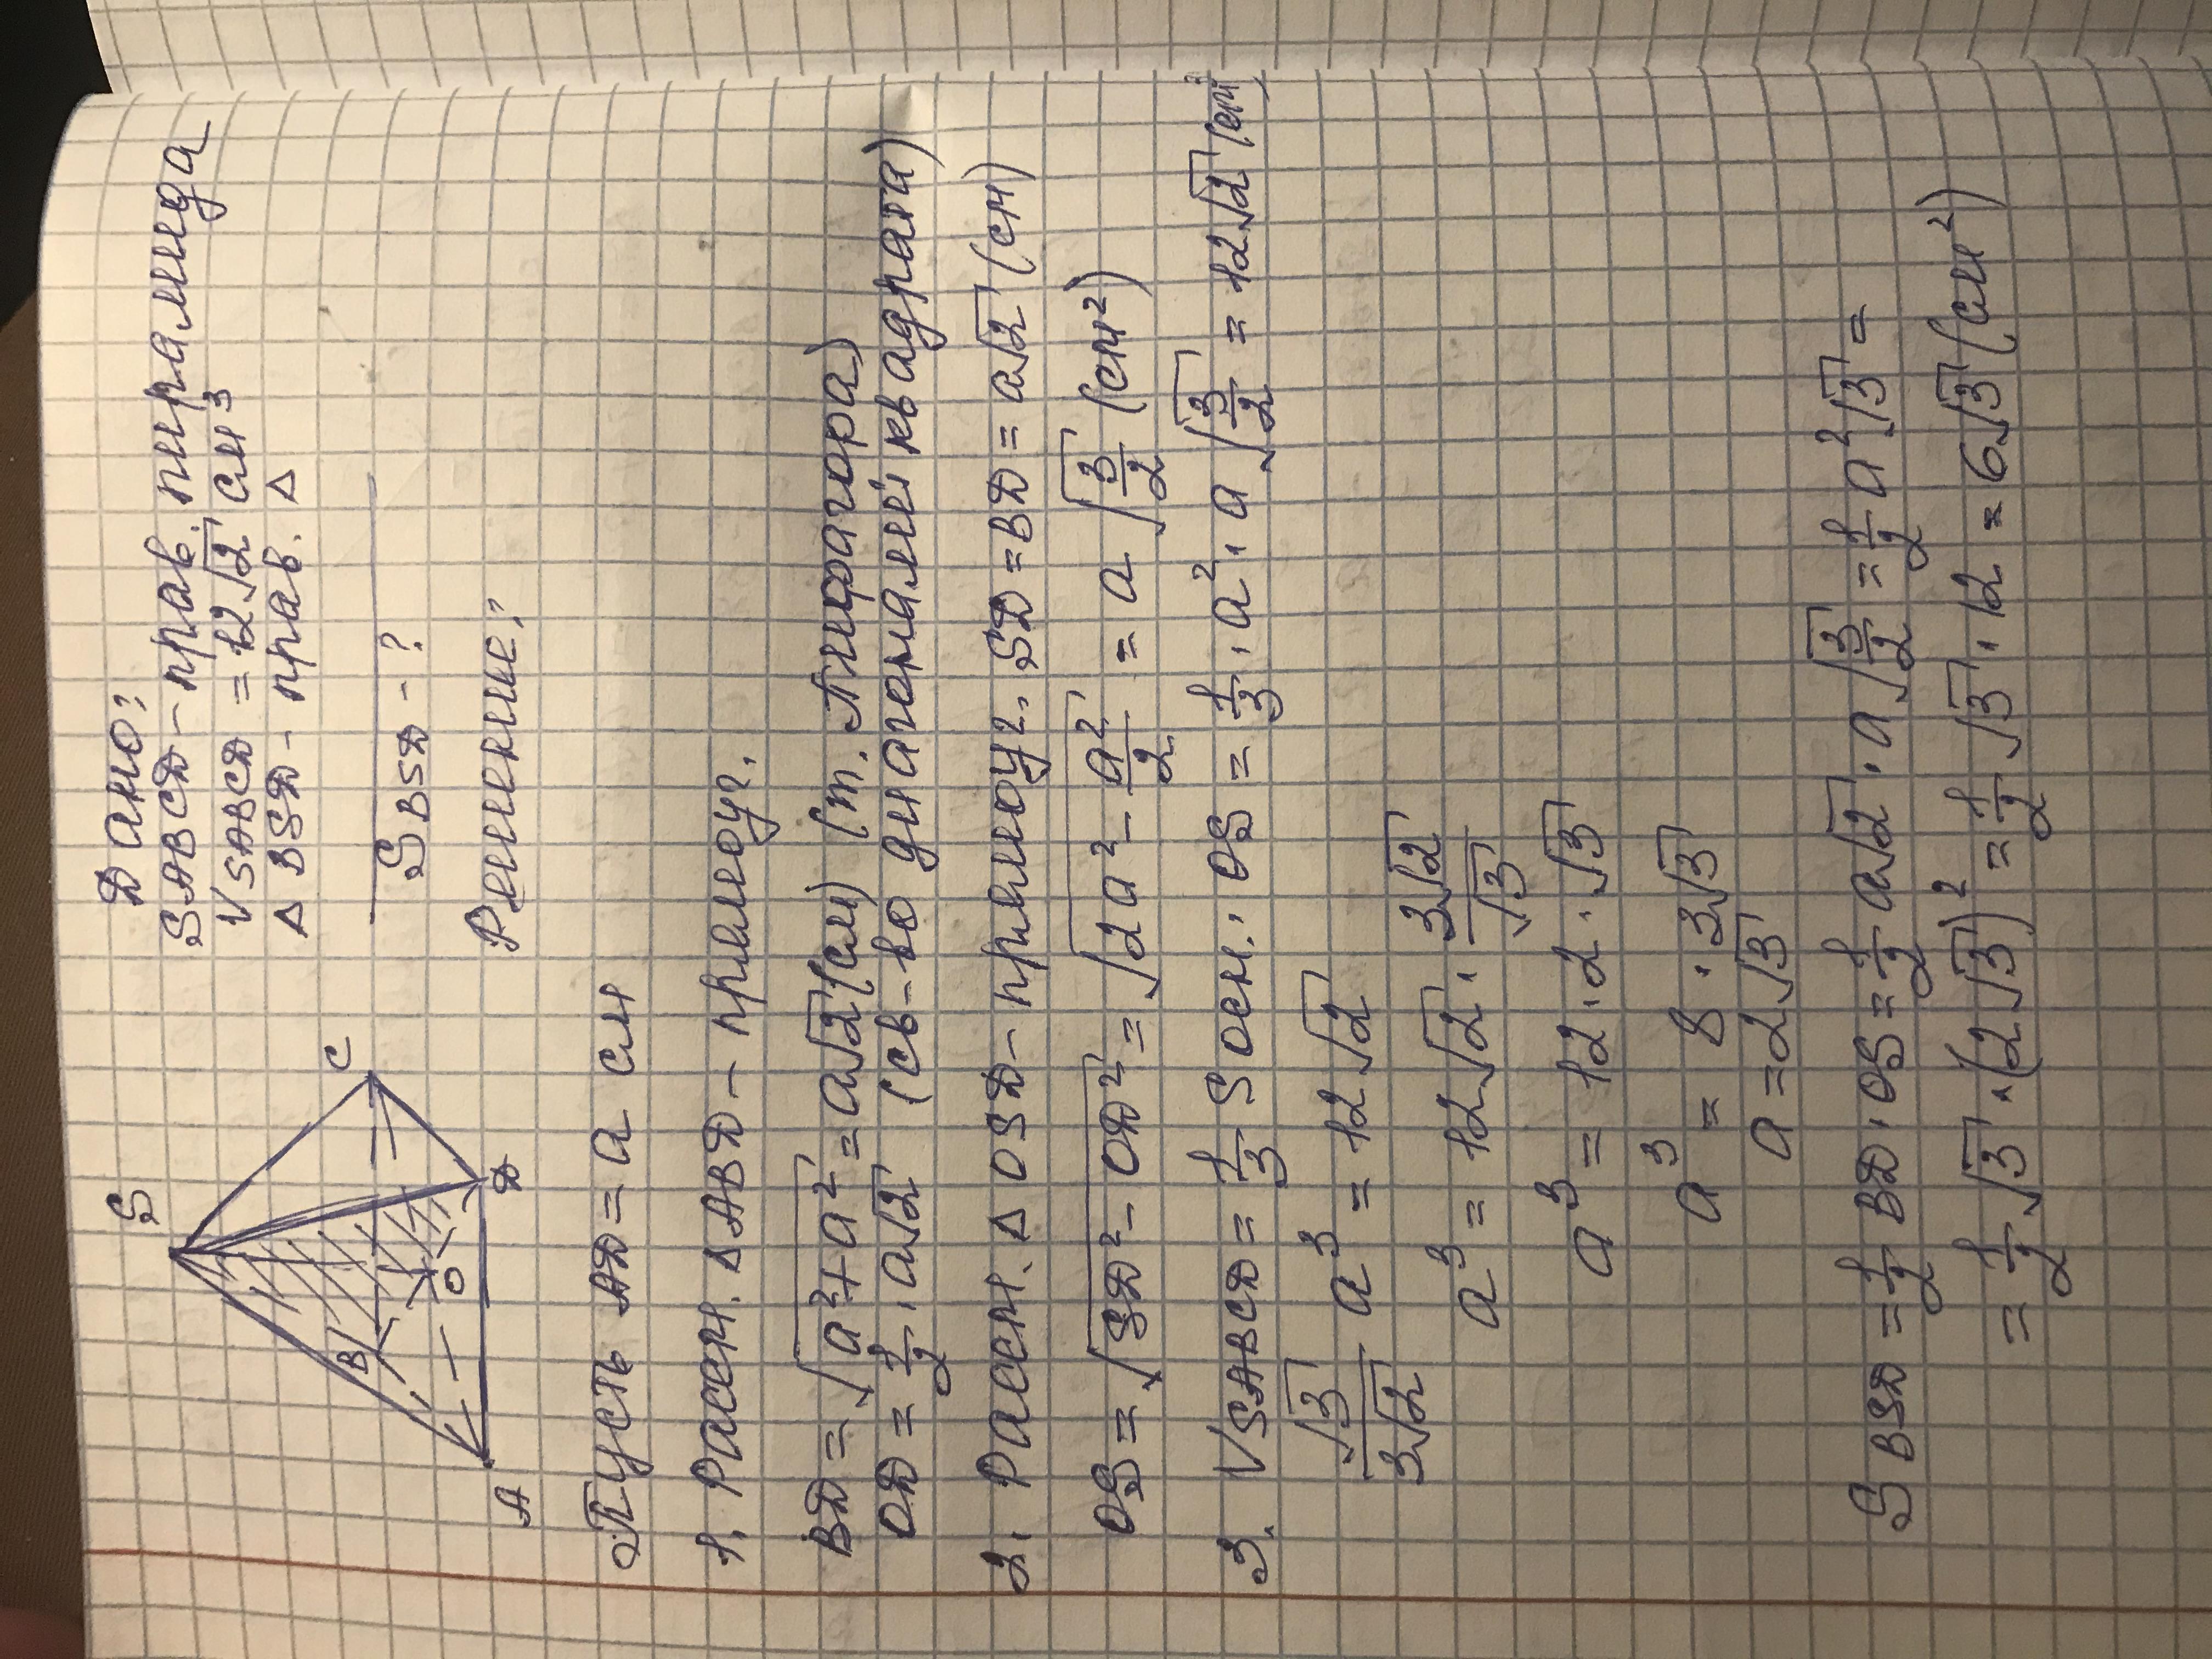 Дано:
SABCD - прав. пирамида
VSABCD = 12√2 см³
△ BSD - прав. △
SBSD - ?
Решение:
S
C
B
O
D
A
Пусть AD = a см
1. Рассм. △ABD - прямоуг.
BD = √(a²+a²) = a√2 (см) (т. Пифагора)
OD = 1/2 · a√2 (св-во диагоналей квадрата)
2. Рассм. △ OSD - прямоуг. SD = BD = a√2 (см)
OS = √(SD² - OD²) = √(2a² - a²/2) = a √(3/2) (см²)
3. VSABCD = 1/3 S осн. · OS = 1/3 · a² · a √(3/2) = 12√2 (см³)
√3/(3√2) a³ = 12√2
a³ = 12√2 · 3√2/√3
a³ = 12 · 2 · √3
a³ = 8 · 3√3
a = 2√3
SBSD = 1/2 BD · OS = 1/2 a√2 · a √(3/2) = 1/2 a²√3 =
= 1/2 √3 · (2√3)² = 1/2 √3 · 12 = 6√3 (см²)